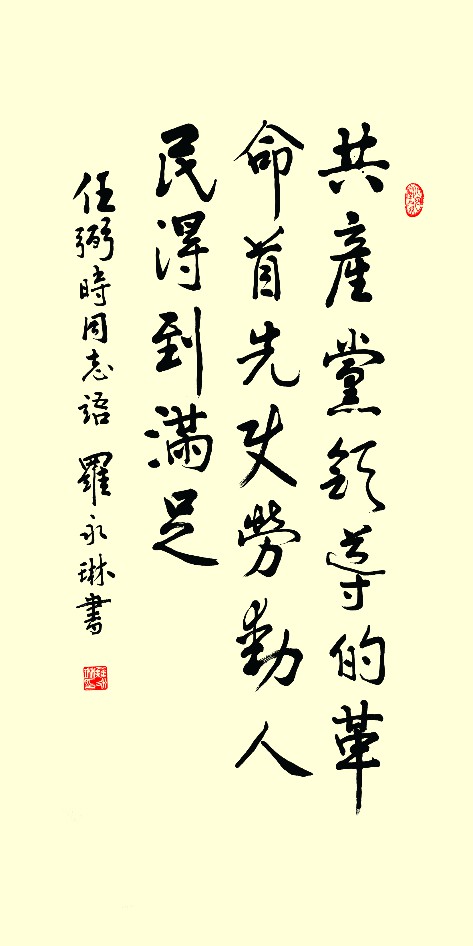 共產黨領導的革
命首先使勞動人
民得到滿足
任弼時同志語 羅永琳書